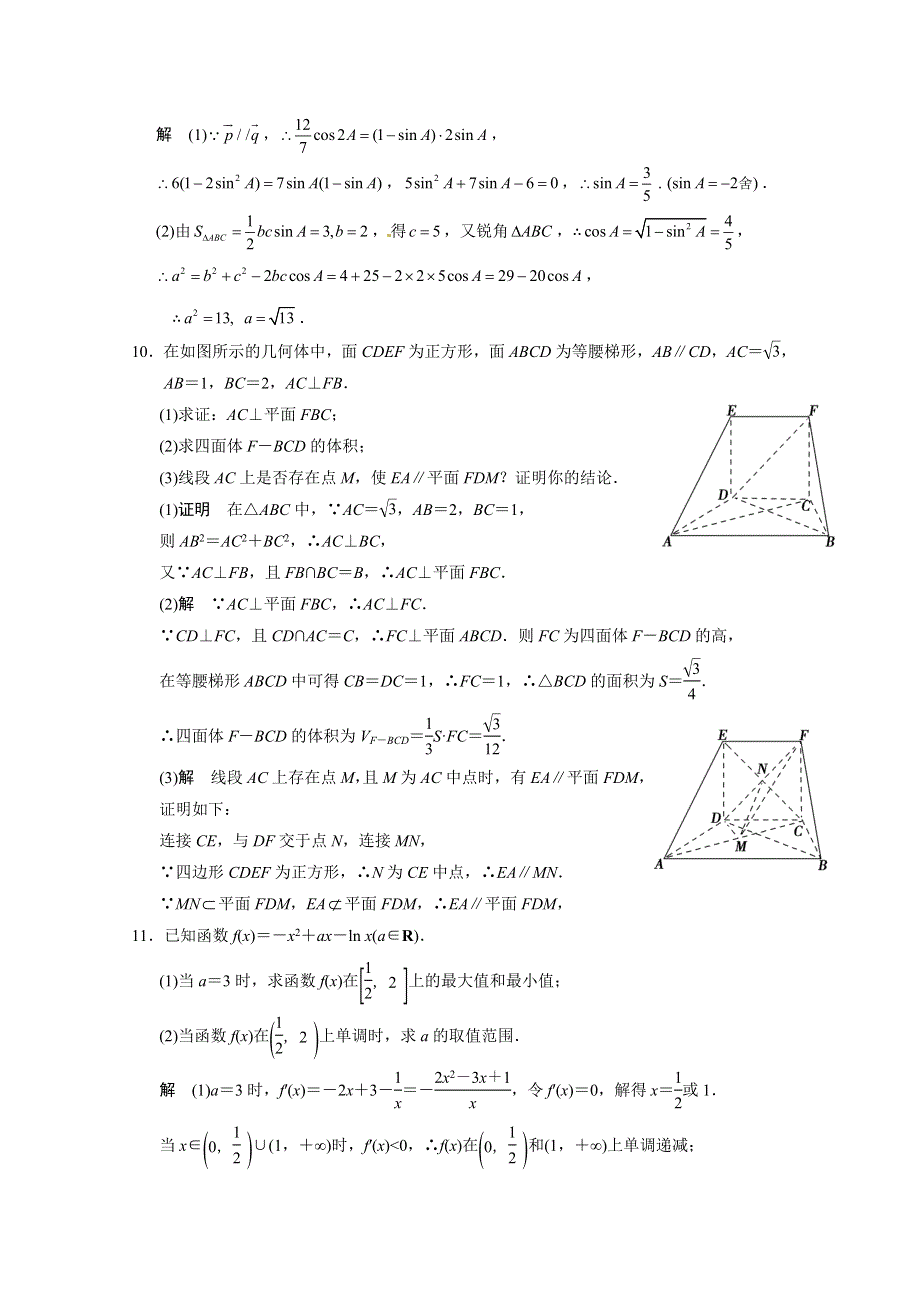 解　(1)∵p⃗//q⃗，∴12/7 cos2A=(1−sin A)·2sin A，
∴6(1−2sin² A)=7sin A(1−sin A)，5sin² A+7sin A−6=0，∴sin A=3/5．(sin A=−2舍)．
(2)由S_ΔABC=1/2 bc sin A=3,b=2，得c=5，又锐角ΔABC，∴cos A=√(1−sin² A)=4/5，
∴a²=b²+c²−2bc cos A=4+25−2×2×5cos A=29−20cos A，
∴a²=13, a=√13．
10．在如图所示的几何体中，面CDEF为正方形，面ABCD为等腰梯形，AB∥CD，AC＝√3，
AB＝1，BC＝2，AC⊥FB．
(1)求证：AC⊥平面FBC；
(2)求四面体F－BCD的体积；
(3)线段AC上是否存在点M，使EA∥平面FDM？证明你的结论．
E F D C A B
(1)证明　在△ABC中，∵AC＝√3，AB＝2，BC＝1，
则AB²＝AC²＋BC²，∴AC⊥BC，
又∵AC⊥FB，且FB∩BC＝B，∴AC⊥平面FBC．
(2)解　∵AC⊥平面FBC，∴AC⊥FC．
∵CD⊥FC，且CD∩AC＝C，∴FC⊥平面ABCD．则FC为四面体F－BCD的高，
在等腰梯形ABCD中可得CB＝DC＝1，∴FC＝1，∴△BCD的面积为S＝√3/4．
∴四面体F－BCD的体积为V_F－BCD＝1/3 S·FC＝√3/12．
(3)解　线段AC上存在点M，且M为AC中点时，有EA∥平面FDM，
证明如下：
连接CE，与DF交于点N，连接MN，
E F N D C M A B
∵四边形CDEF为正方形，∴N为CE中点，∴EA∥MN．
∵MN⊂平面FDM，EA⊄平面FDM，∴EA∥平面FDM，
11．已知函数f(x)＝－x²＋ax－ln x(a∈R)．
(1)当a＝3时，求函数f(x)在[1/2，2]上的最大值和最小值；
(2)当函数f(x)在(1/2，2)上单调时，求a的取值范围．
解　(1)a＝3时，f′(x)＝－2x＋3－1/x＝－(2x²－3x＋1)/x，令f′(x)＝0，解得x＝1/2或1．
当x∈(0，1/2)∪(1，＋∞)时，f′(x)<0，∴f(x)在(0，1/2)和(1，＋∞)上单调递减；